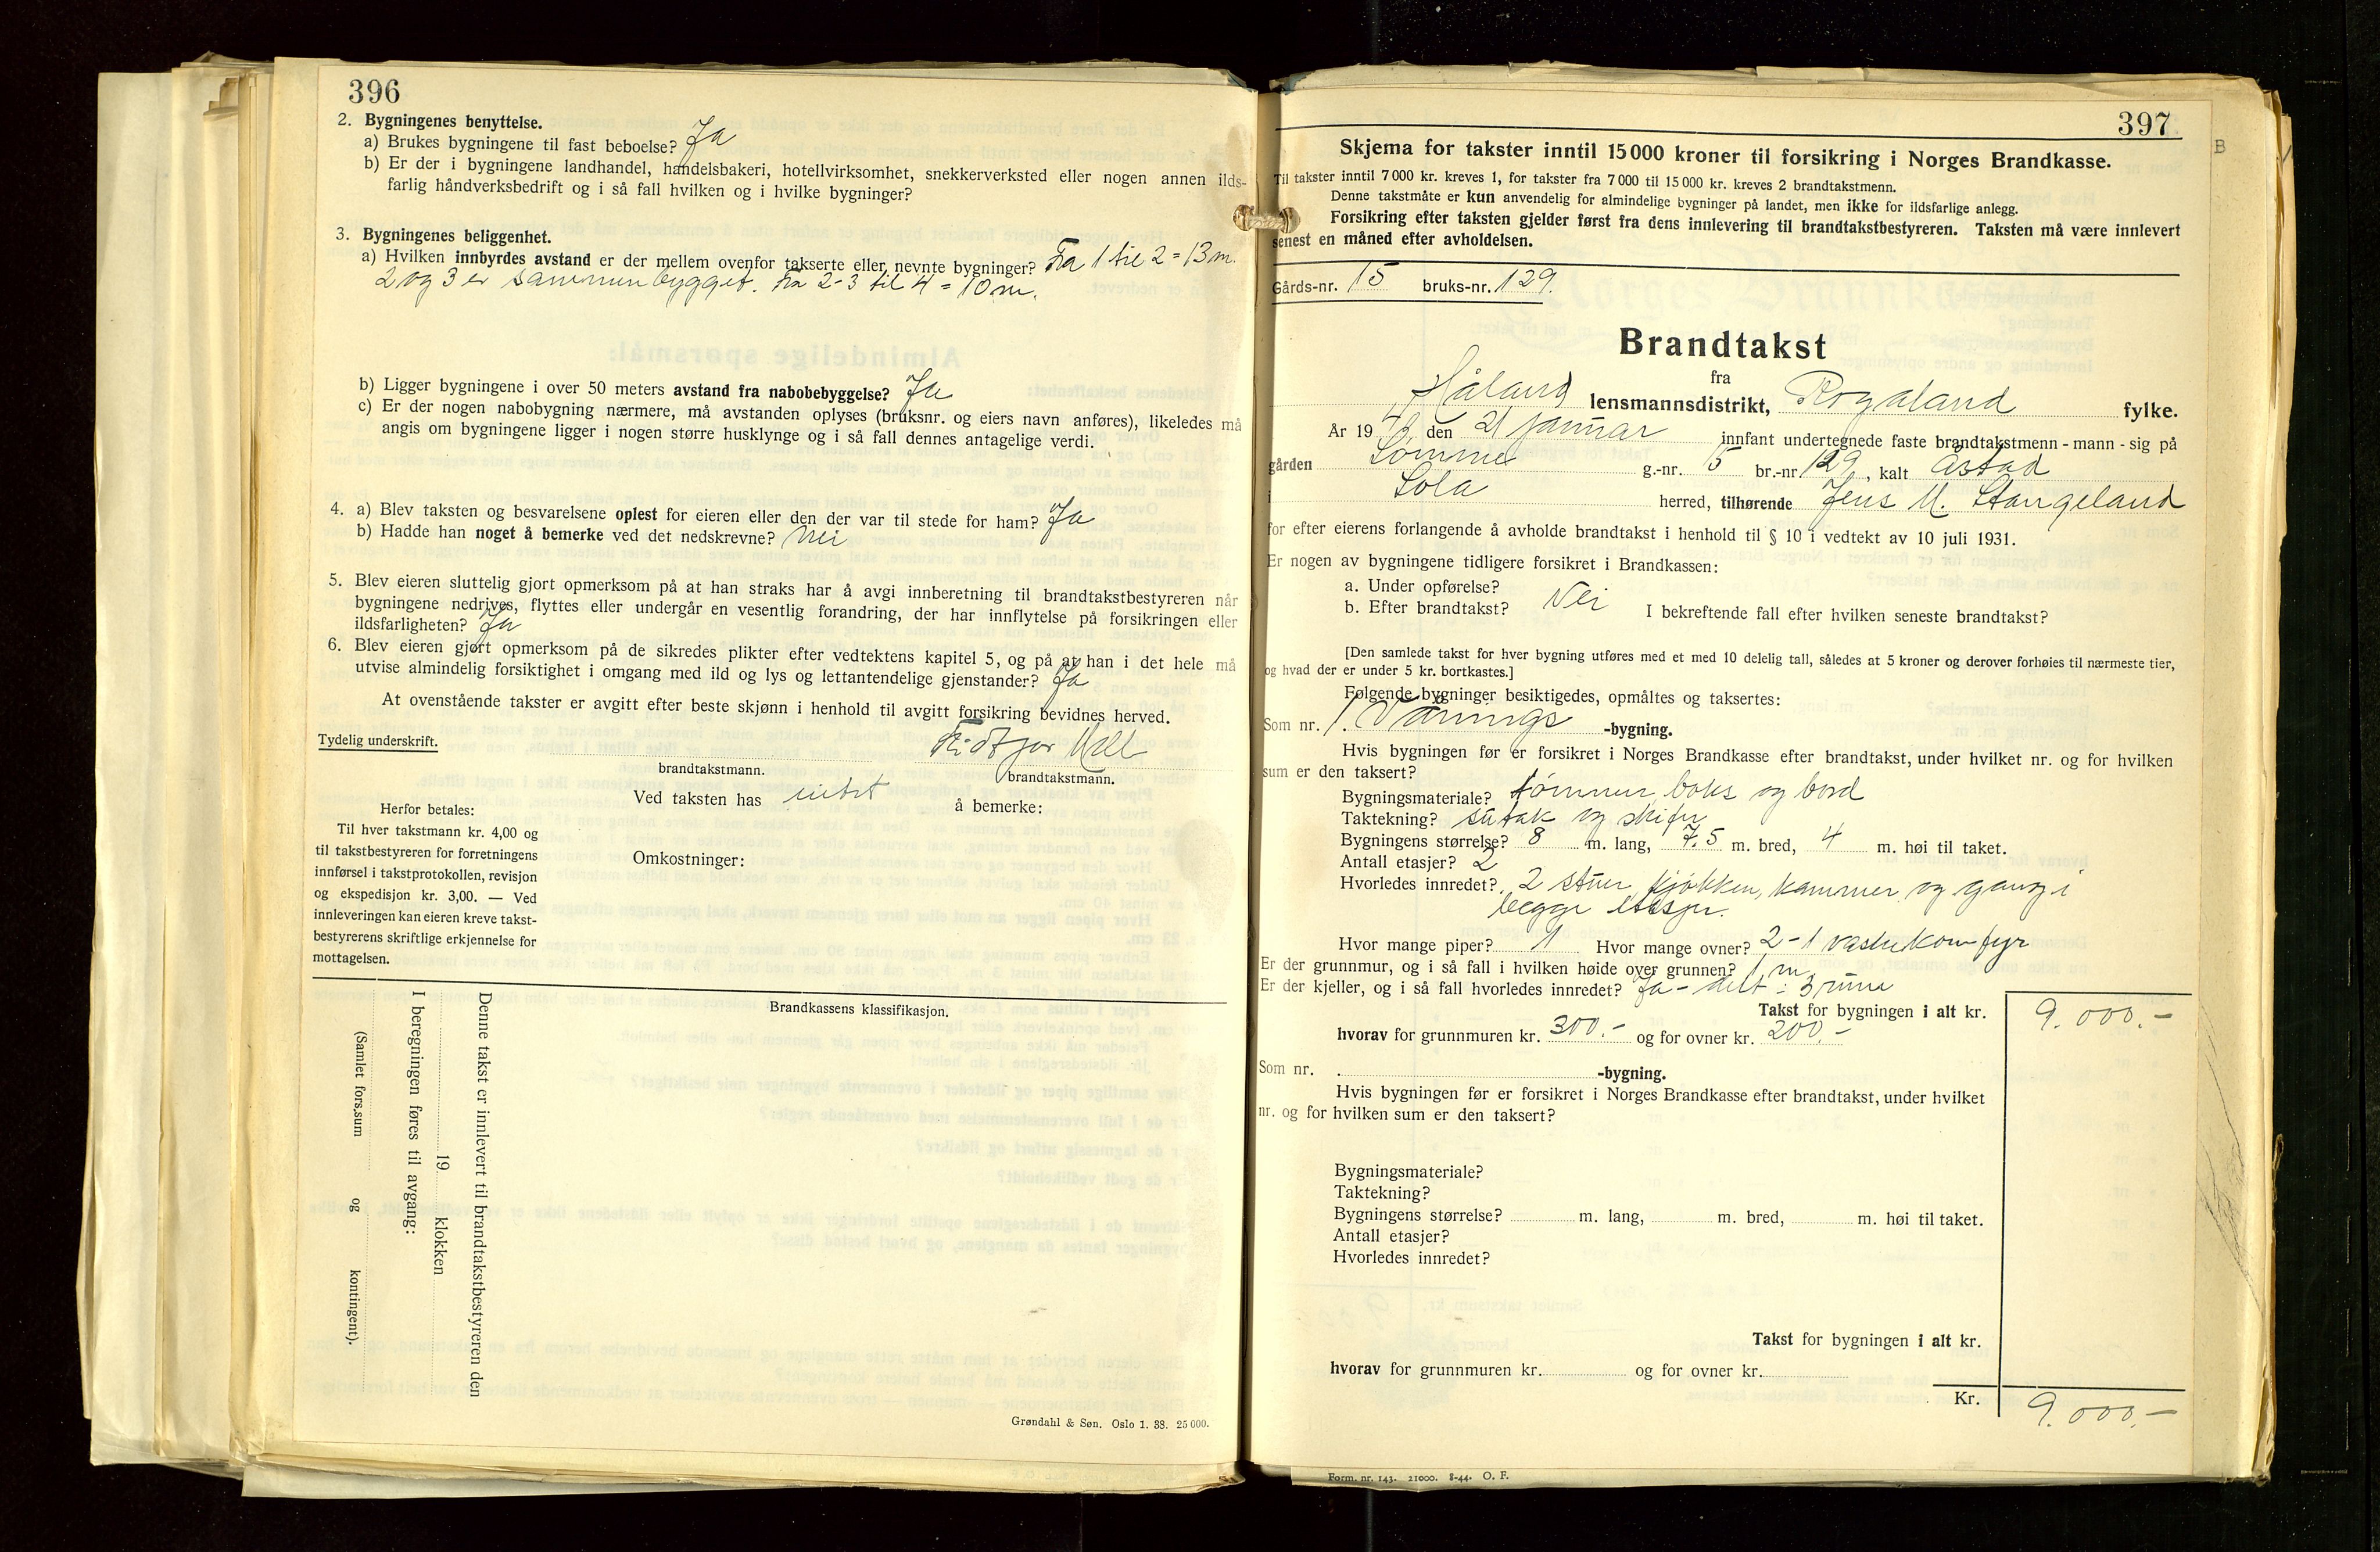 396
2. Bygningenes benyttelse.
a) Brukes bygningene til fast beboelse? Ja
b) Er der i bygningene landhandel, handelsbakeri, hotellvirksomhet, snekkerverksted eller nogen annen ilds-
farlig håndverksbedrift og i så fall hvilken og i hvilke bygninger?
3. Bygningenes beliggenhet.
a) Hvilken innbyrdes avstand er der mellem ovenfor takserte eller nevnte bygninger? Fra 1 til 2 = 13 m.
2 og 3 er sammenbygget. Fra 2-3 til 4 = 10 m.
b) Ligger bygningene i over 50 meters avstand fra nabobebyggelse? Ja
c) Er der nogen nabobygning nærmere, må avstanden oplyses (bruksnr. og eiers navn anføres), likeledes må
angis om bygningene ligger i nogen større husklynge og i så fall dennes antagelige verdi.
4. a) Blev taksten og besvarelsene oplest for eieren eller den der var til stede for ham? Ja
b) Hadde han noget å bemerke ved det nedskrevne? Nei
5. Blev eieren sluttelig gjort opmerksom på at han straks har å avgi innberetning til brandtakstbestyreren når
bygningene nedrives, flyttes eller undergår en vesentlig forandring, der har innflytelse på forsikringen eller
ildsfarligheten? Ja
6. Blev eieren gjort opmerksom på de sikredes plikter efter vedtektens kapitel 5, og på at han i det hele må
utvise almindelig forsiktighet i omgang med ild og lys og lettantendelige gjenstander? Ja
At ovenstående takster er avgitt efter beste skjønn i henhold til avgitt forsikring bevidnes herved.
Tydelig underskrift.
brandtakstmann. brandtakstmann.
Ved taksten has intet å bemerke:
Herfor betales:
Til hver takstmann kr. 4,00 og
til takstbestyreren for forretningens
innførsel i takstprotokollen, revisjon
og ekspedisjon kr. 3,00. — Ved
innleveringen kan eieren kreve takst-
bestyrerens skriftlige erkjennelse for
mottagelsen.
Omkostninger:
Brandkassens klassifikasjon.
Denne takst er innlevert til brandtakstbestyreren den
19 klokken
I beregningen føres til avgang:
(Samlet fors.sum og kontingent).
Grøndahl & Søn. Oslo 1. 38. 25 000.
397
Skjema for takster inntil 15 000 kroner til forsikring i Norges Brandkasse.
Til takster inntil 7 000 kr. kreves 1, for takster fra 7 000 til 15 000 kr. kreves 2 brandtakstmenn.
Denne takstmåte er kun anvendelig for almindelige bygninger på landet, men ikke for ildsfarlige anlegg.
Forsikring efter taksten gjelder først fra dens innlevering til brandtakstbestyreren. Taksten må være innlevert
senest en måned efter avholdelsen.
Gårds-nr. 15 bruks-nr. 129.
Brandtakst
fra
Håland lensmannsdistrikt, Rogaland fylke.
År 19 den 21 januar innfant undertegnede faste brandtakstmenn - mann - sig på
gården Sømme g.-nr. 15 br.-nr. 129, kalt Åstad
i Sola herred, tilhørende Jens M. Stangeland
for efter eierens forlangende å avholde brandtakst i henhold til § 10 i vedtekt av 10 juli 1931.
Er nogen av bygningene tidligere forsikret i Brandkassen:
a. Under opførelse?
b. Efter brandtakst? Nei I bekreftende fall efter hvilken seneste brandtakst?
[Den samlede takst for hver bygning utføres med et med 10 delelig tall, således at 5 kroner og derover forhøies til nærmeste tier,
og hvad der er under 5 kr. bortkastes.]
Følgende bygninger besiktigedes, opmåltes og taksertes:
Som nr. 1. Vånings -bygning.
Hvis bygningen før er forsikret i Norges Brandkasse efter brandtakst, under hvilket nr. og for hvilken
sum er den taksert?
Bygningsmateriale? tømmer, boks og bord
Taktekning? sutak og skifer
Bygningens størrelse? 8 m. lang, 7.5 m. bred, 4 m. høi til taket.
Antall etasjer? 2
Hvorledes innredet? 2 stuer, kjøkken, kammer og gang i
begge etasjer.
Hvor mange piper? 1 Hvor mange ovner? 2 - 1 vaskekomfyr
Er der grunnmur, og i så fall i hvilken høide over grunnen? 1 m
Er der kjeller, og i så fall hvorledes innredet? Ja - delt i 3 rum
Takst for bygningen i alt kr. 9.000.-
hvorav for grunnmuren kr. 300.- og for ovner kr. 200.-
Som nr. . -bygning.
Hvis bygningen før er forsikret i Norges Brandkasse efter brandtakst, under hvilket
nr. og for hvilken sum er den taksert?
Bygningsmateriale?
Taktekning?
Bygningens størrelse? m. lang, m. bred, m. høi til taket.
Antall etasjer?
Hvorledes innredet?
Takst for bygningen i alt kr.
hvorav for grunnmuren kr. og for ovner kr.
Kr. 9.000.-
Form. nr. 143. 21000. 8-44. O. F.
B